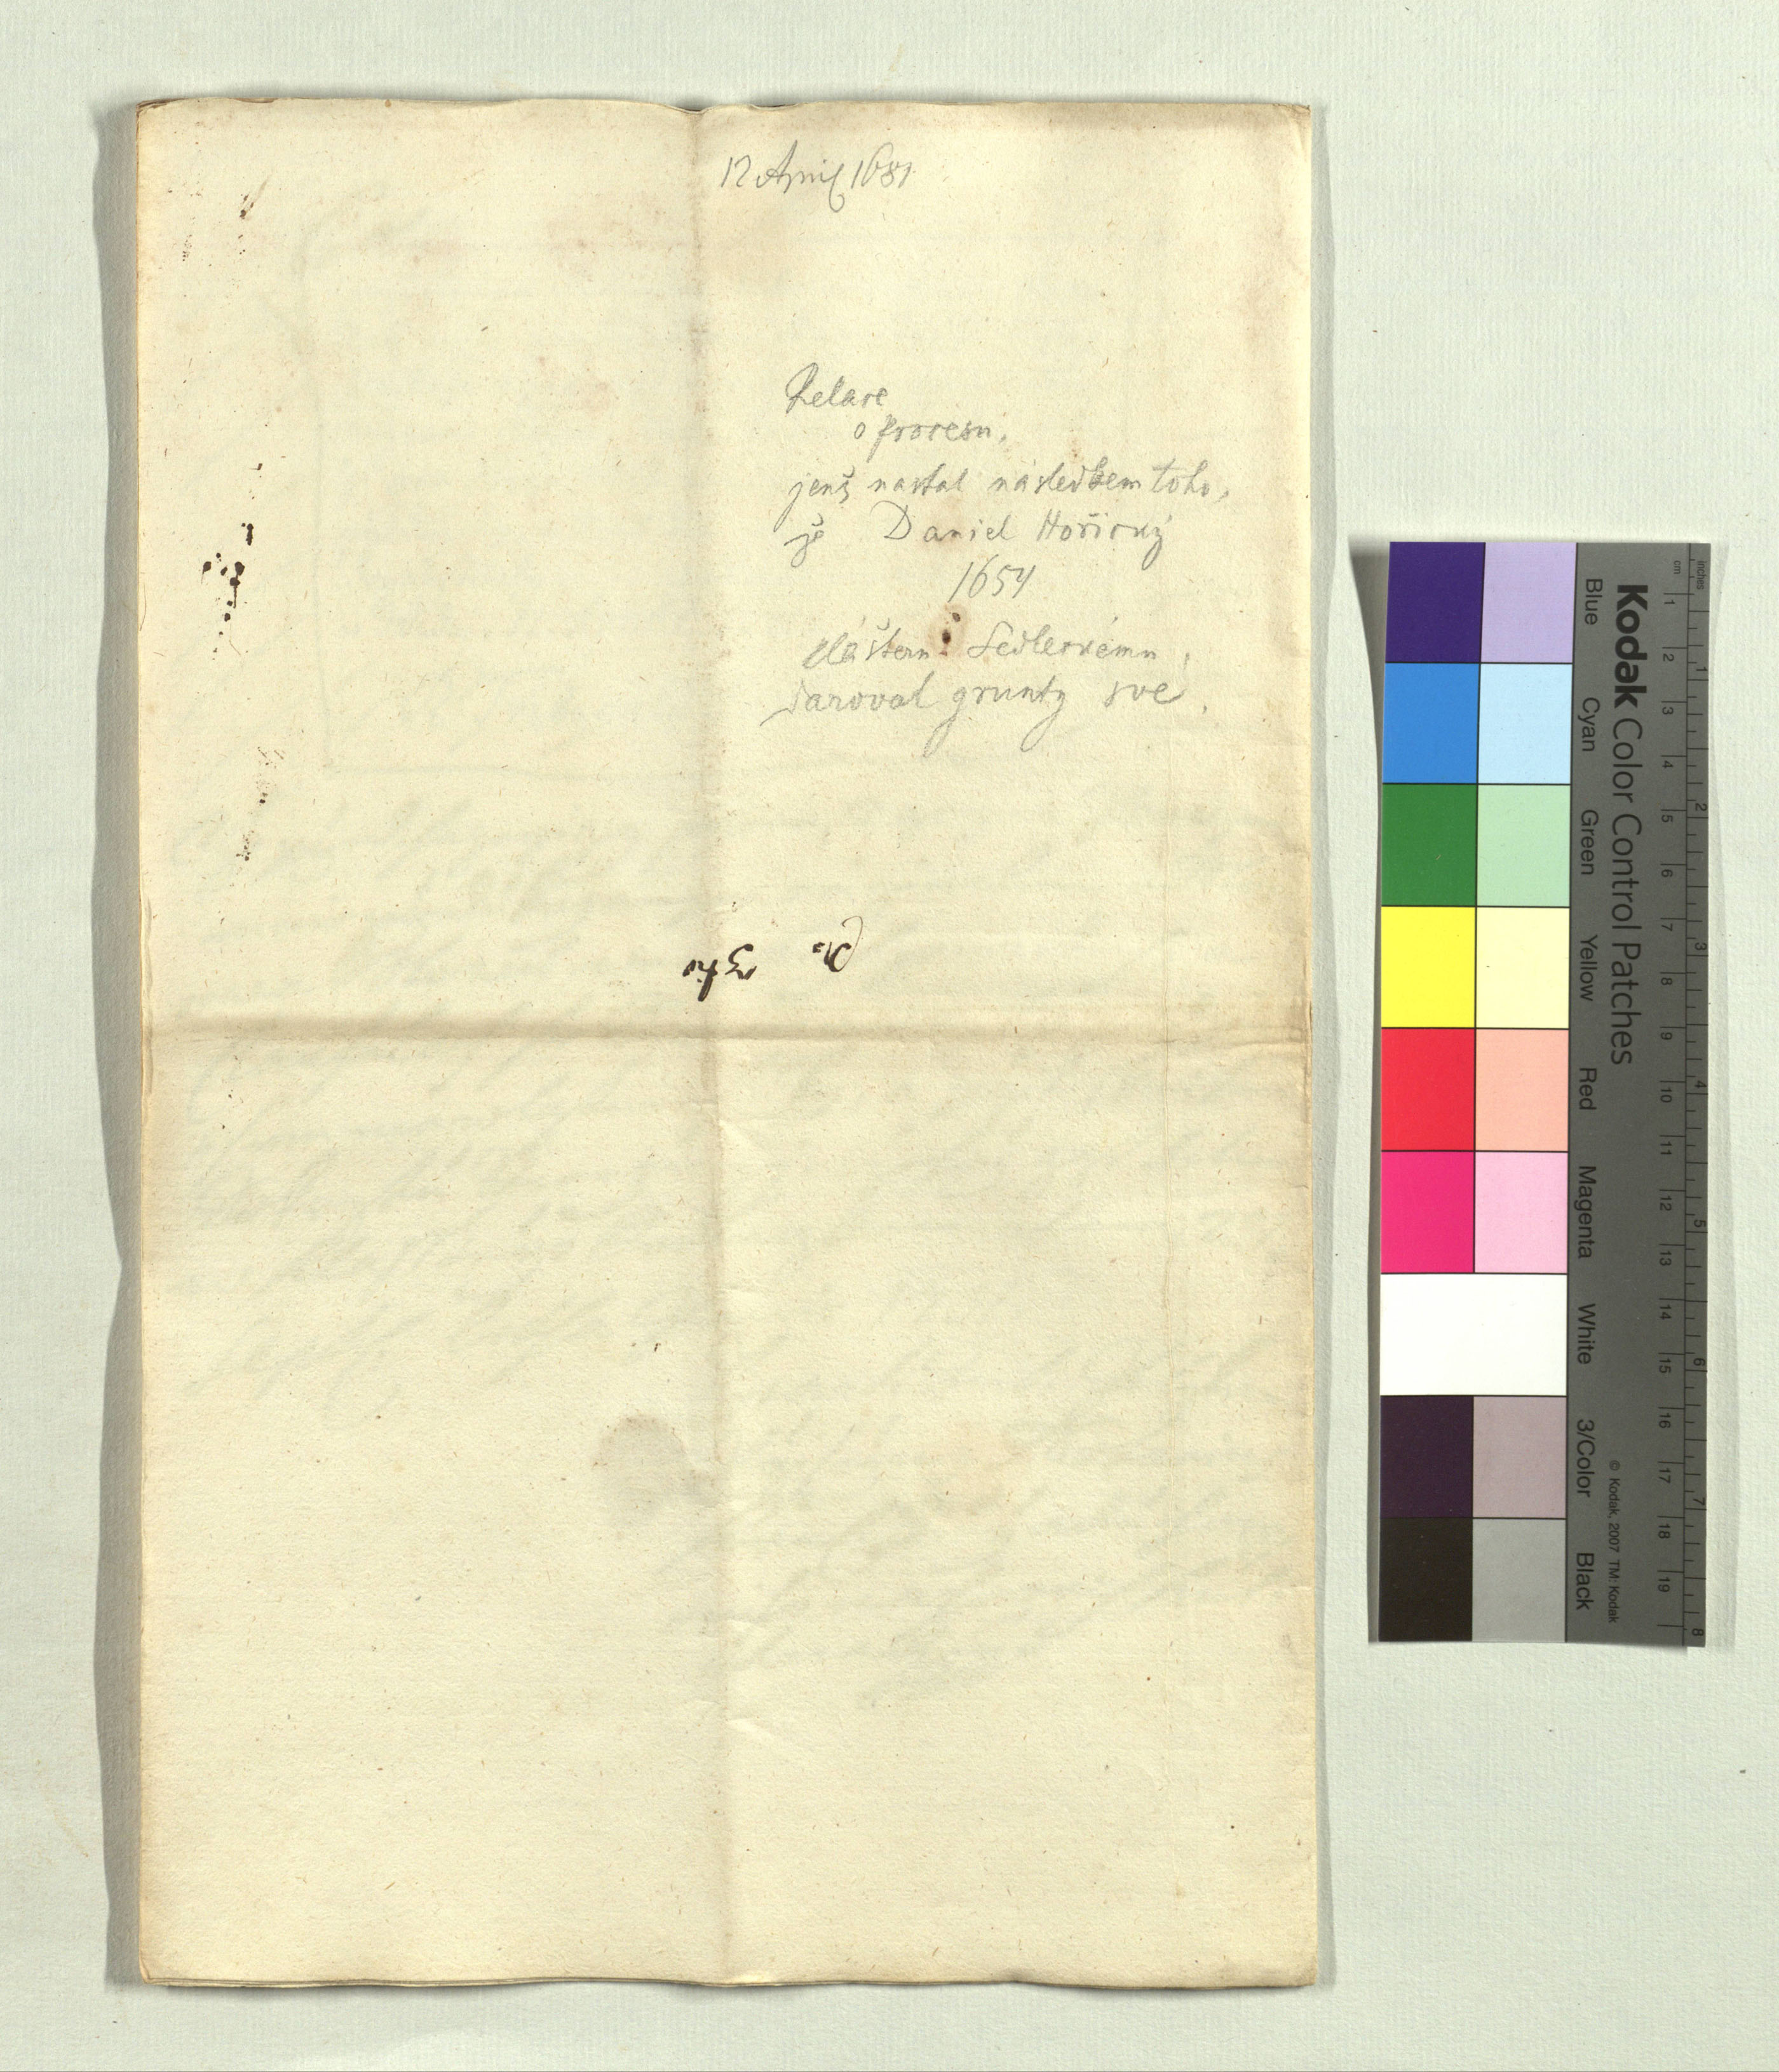 12 April 1681
Relace
o procesu,
jenž nastal následkem toho,
že Daniel Hořický
1654
klášteru Sedleckému
daroval grunty své.
Kodak Color Control Patches
Blue Cyan Green Yellow Red Magenta White 3/Color Black
© Kodak, 2007 TM: Kodak
inches 1 2 3 4 5 6 7 8
cm 1 2 3 4 5 6 7 8 9 10 11 12 13 14 15 16 17 18 19